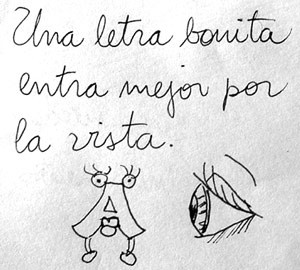 Una letra bonita
entra mejor por
la vista.